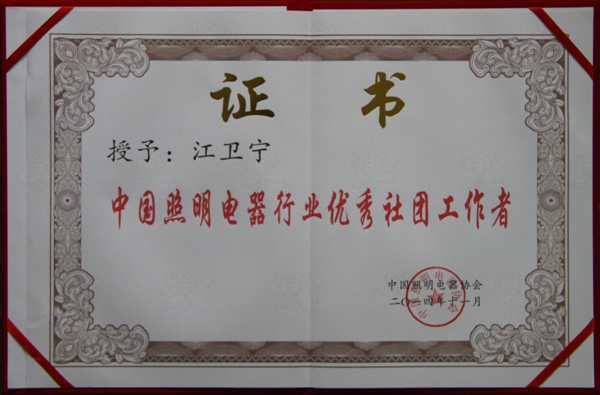 证 书
授予：江卫宁
中国照明电器行业优秀社团工作者
中国照明电器协会
二〇一四年十一月